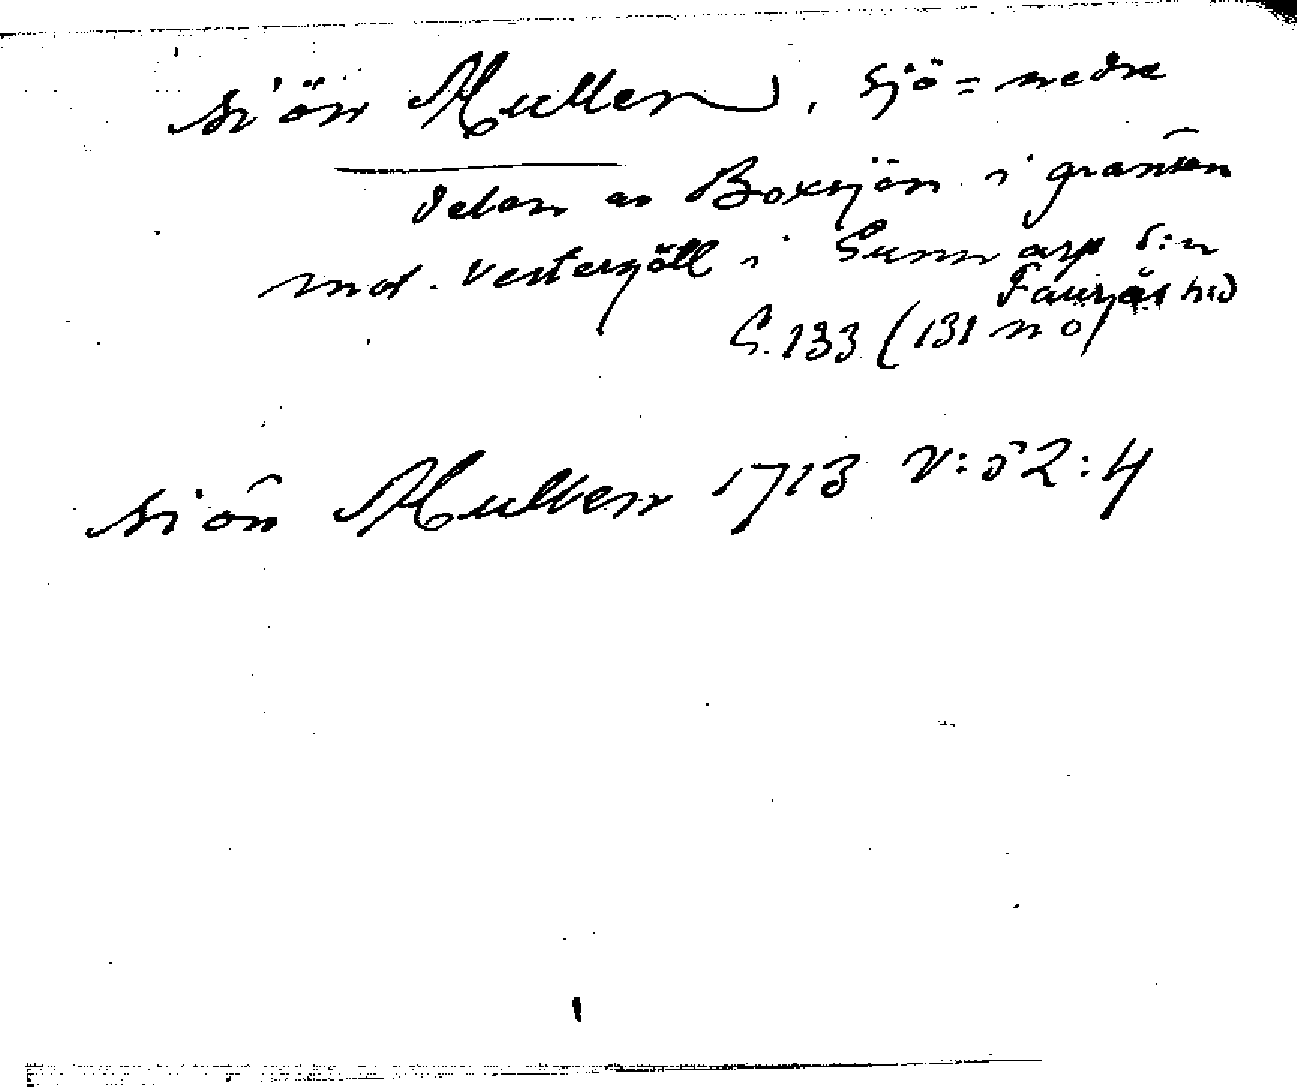 siön Mullen, Sjö = nedre
delen av Boxsjön i gränsen
mot Vestergötl i Gunnarp s:n
Faurås hd
S. 133 (131 nö)
siön Mullen 1713 V:52:4